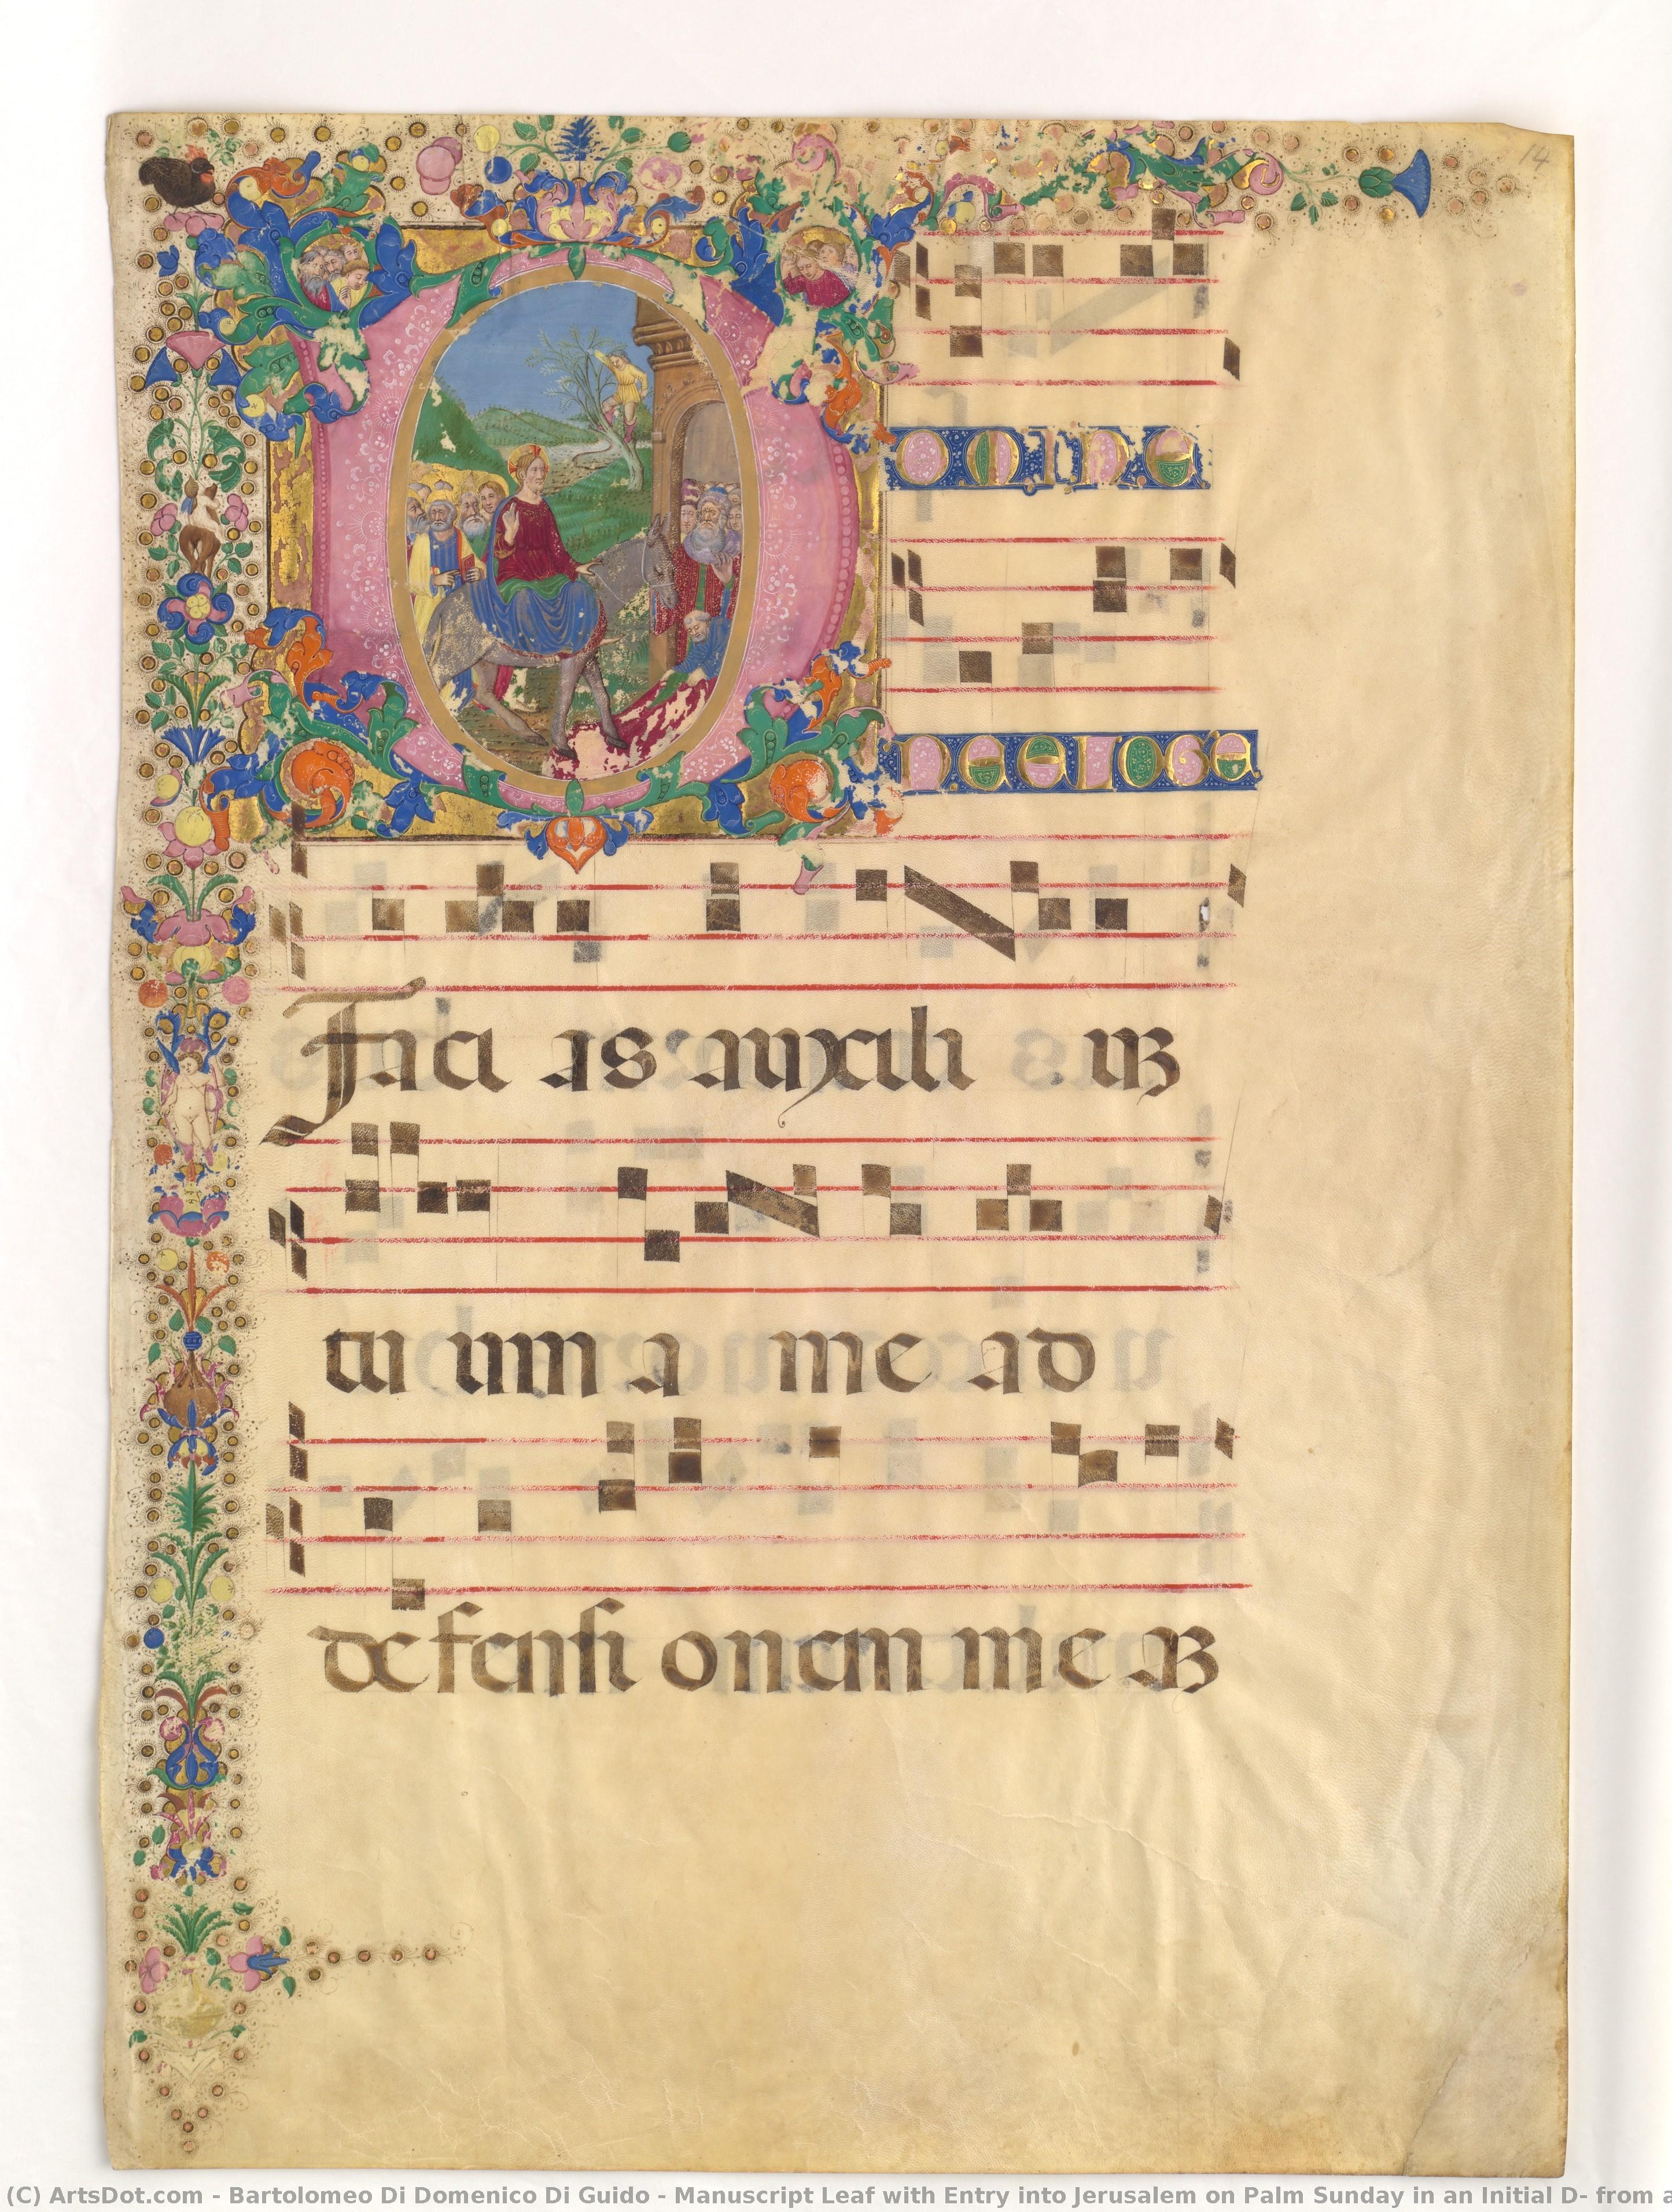 14
Domine
ne eloge
Faci as auxili uꝫ
tu um a me ad
defensi onem me aꝫ
(C) ArtsDot.com - Bartolomeo Di Domenico Di Guido - Manuscript Leaf with Entry into Jerusalem on Palm Sunday in an Initial D- from a